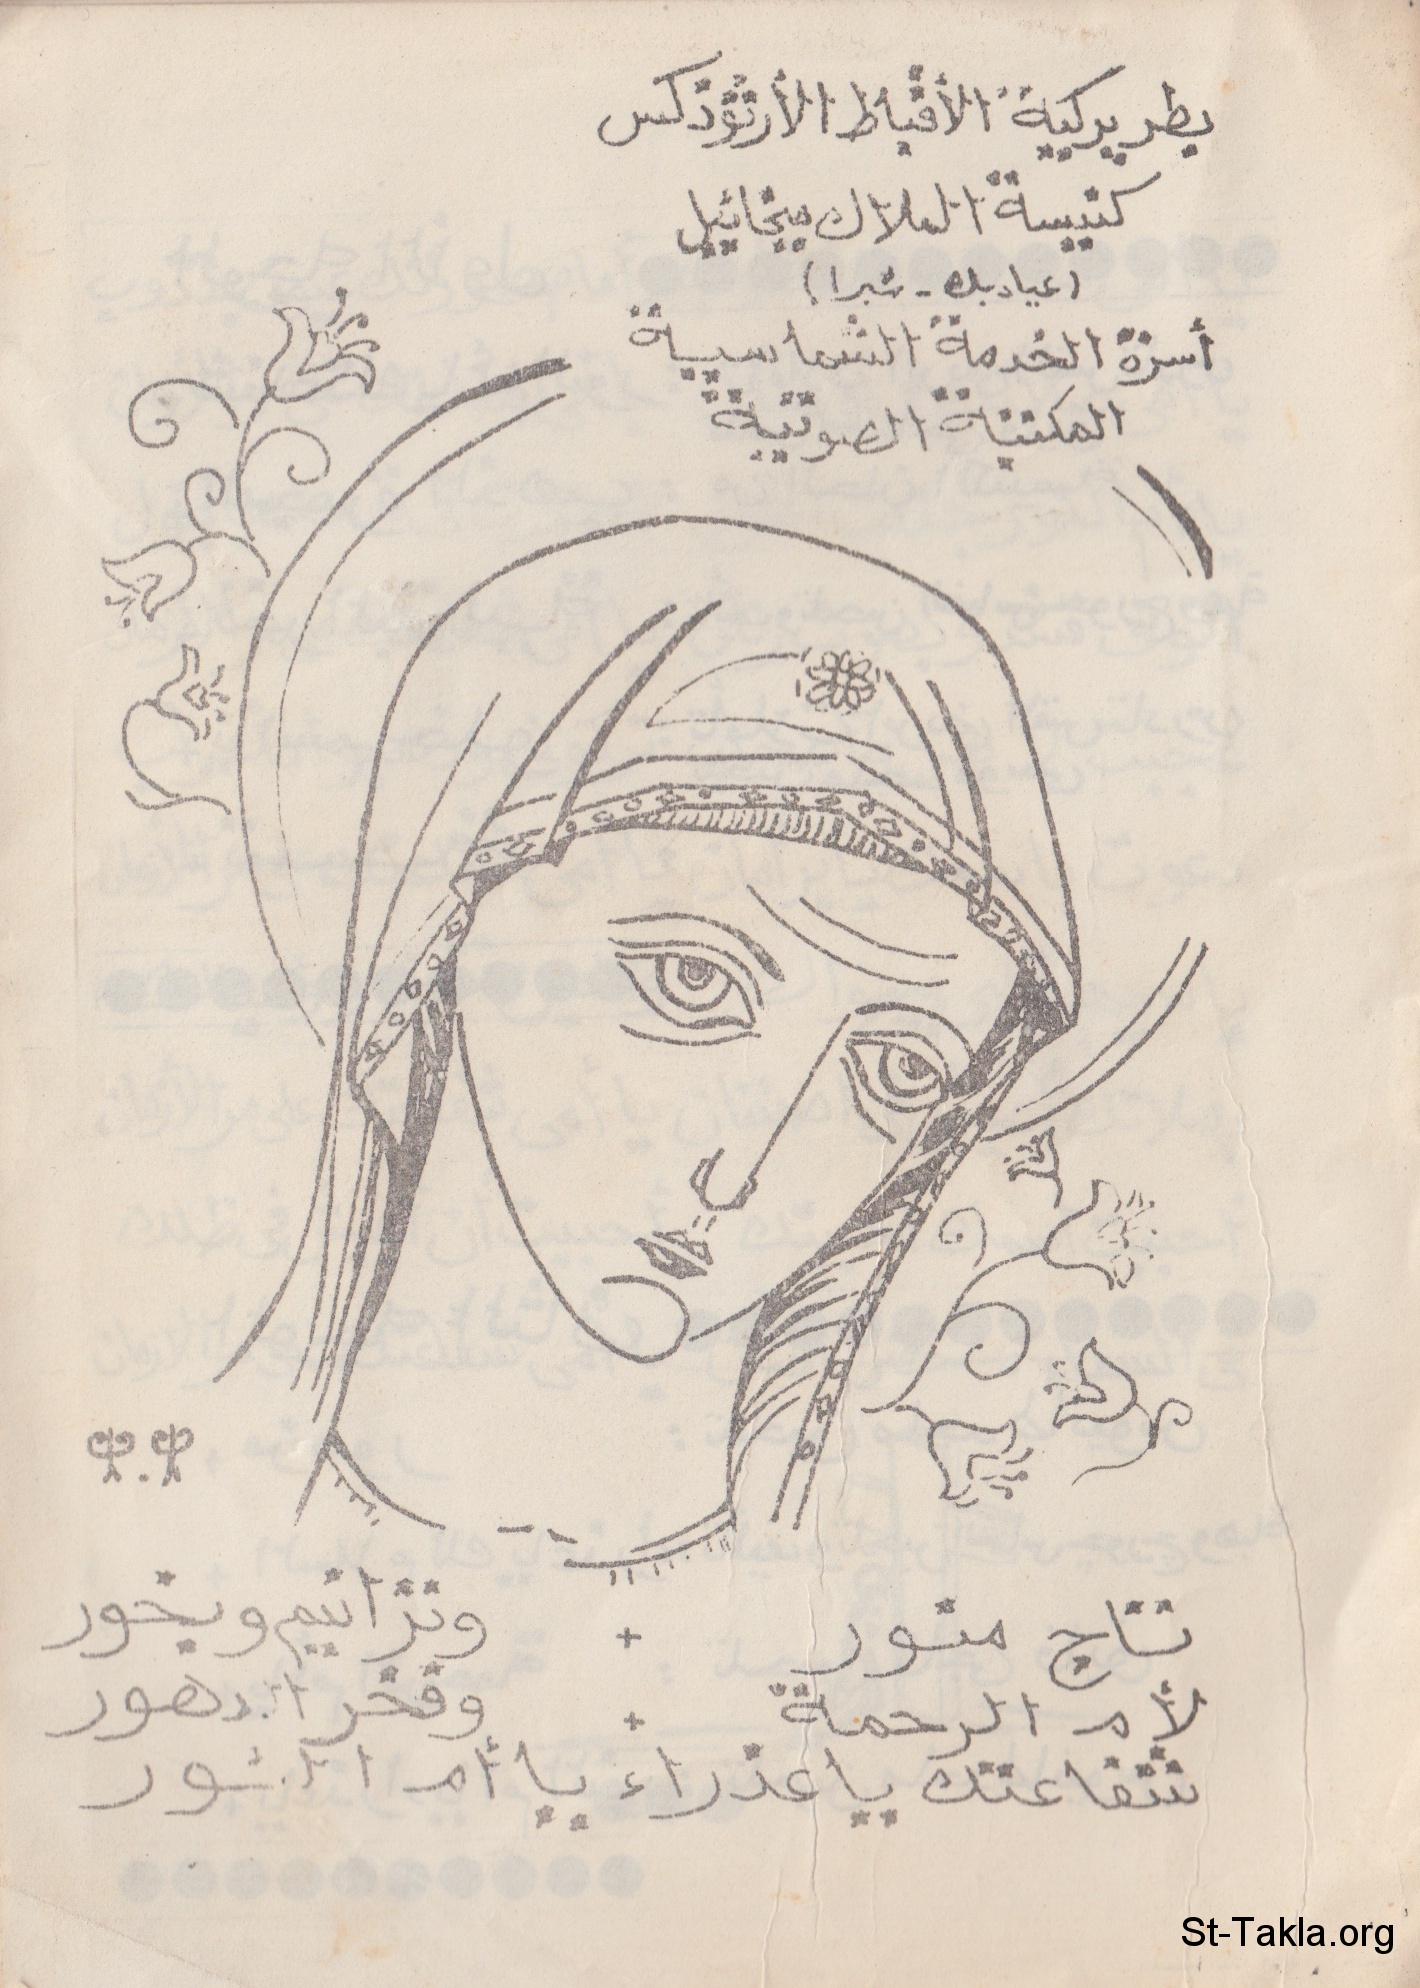 بطريركية الأقباط الأرثوذكس
كنيسة الملاك ميخائيل
(عيادبك - شبرا)
أسرة الخدمة الشماسية
المكتبة الصوتية
تاج منور + وترانيم وبخور
لأم الرحمة + وفخر الدهور
شفاعتك ياعذراء يا أم النور
St-Takla.org